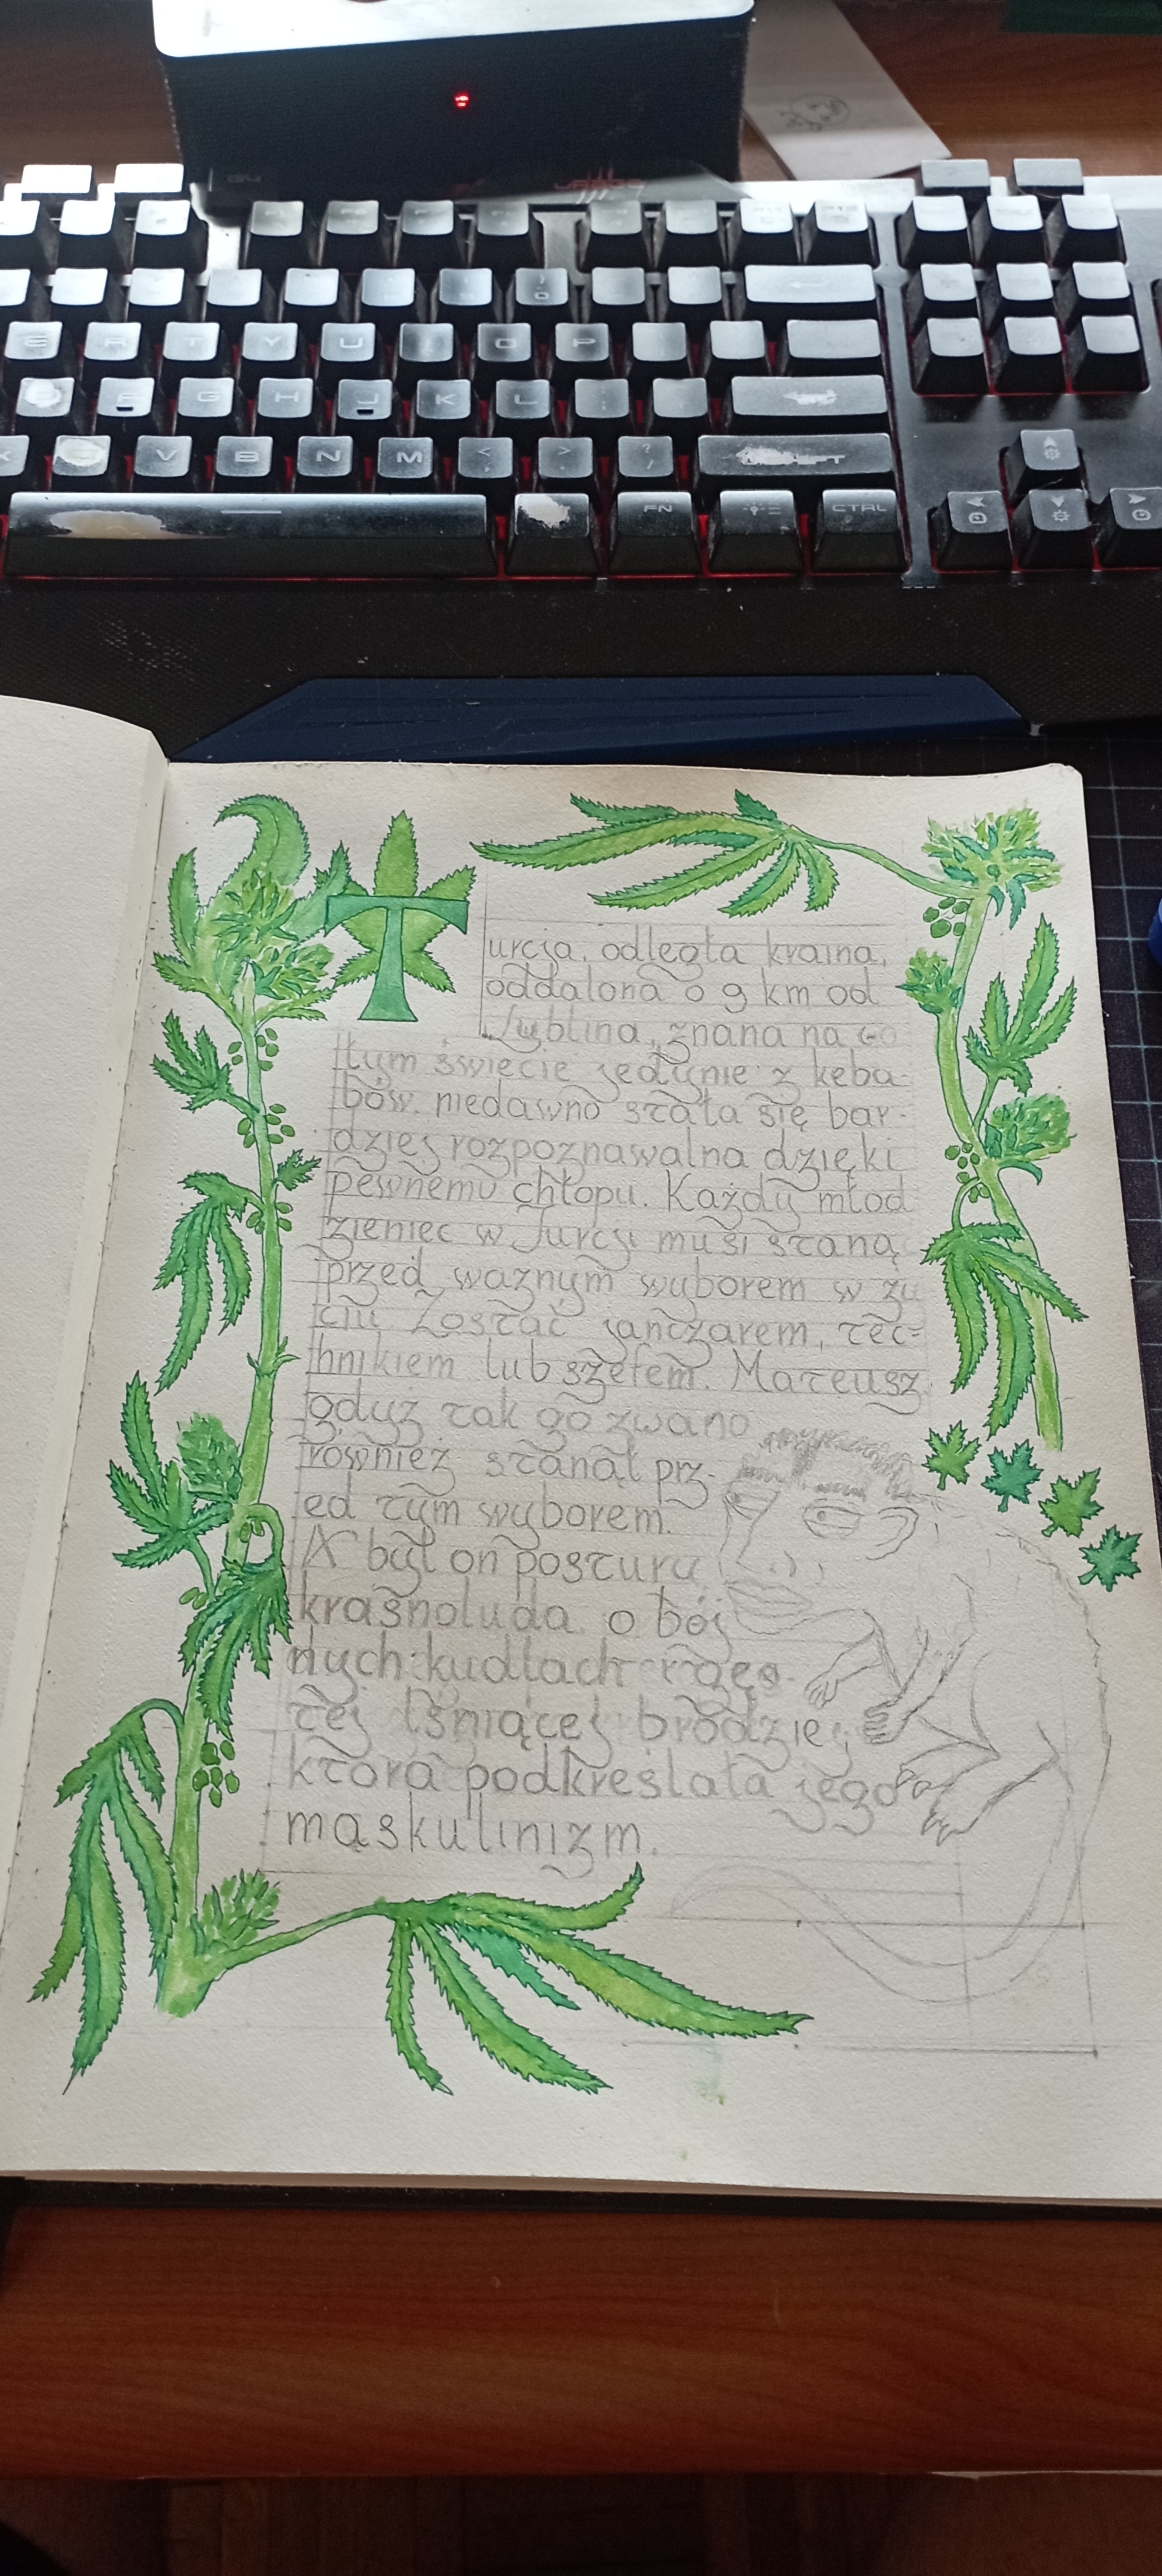 T
urcja, odległa kraina,
oddalona o 9 km od
Lublina, znana na ca
łym świecie jedynie z keba-
bów. niedawno stała się bar-
dziej rozpoznawalna dzięki
pewnemu chłopu. Każdy młod
zieniec w Turcji musi staną
przed ważnym wyborem w ży
ciu Zostać janczarem, tec-
hnikiem lub szefem. Mateusz,
gdyż tak go zwano
również stanął prz-
ed tym wyborem.
A był on postury
krasnoluda o buj
nych kudłach
tej lśniącej brodzie,
która podkreślała jego
maskulinizm.
E R T Y U O P
F G H J K L
V B N M < , > . ? /
FN CTRL